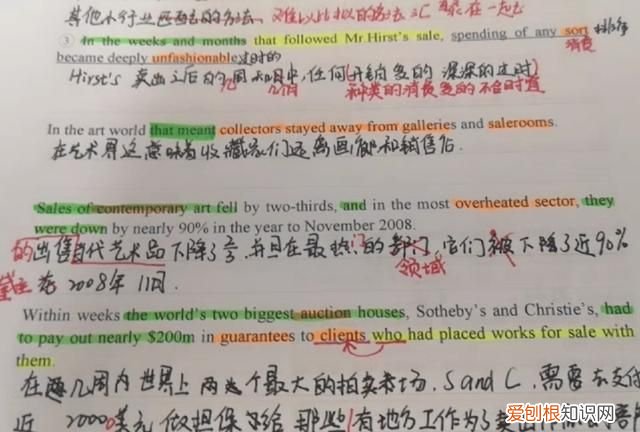 其他小行业匹配去的方法、难以比拟的方法
③ In the weeks and months that followed Mr.Hirst's sale, spending of any sort
消费
became deeply unfashionable过时的
Hirst's 卖出之后的几周和几月中,任何(开销多的 深深的过时)
种类的消费多的不合时宜
In the art world that meant collectors stayed away from galleries and salerooms.
在艺术界这意味着收藏家们远离画廊和销售后.
Sales of contemporary art fell by two-thirds, and in the most overheated sector, they
were down by nearly 90% in the year to November 2008.
的出售当代艺术品下降了2/3,并且在最热门的部门,它们被下降了近90%
领域
在2008年11月.
Within weeks the world's two biggest auction houses, Sotheby's and Christie's, had
to pay out nearly $200m in guarantees to clients who had placed works for sale with
them.
在几周内世界上两个最大的拍卖市场.S and C,需要去支付
近 20000美元 做担保 给 那些 有地方工作为了卖
爱创根知识网
www.icgzsw.com